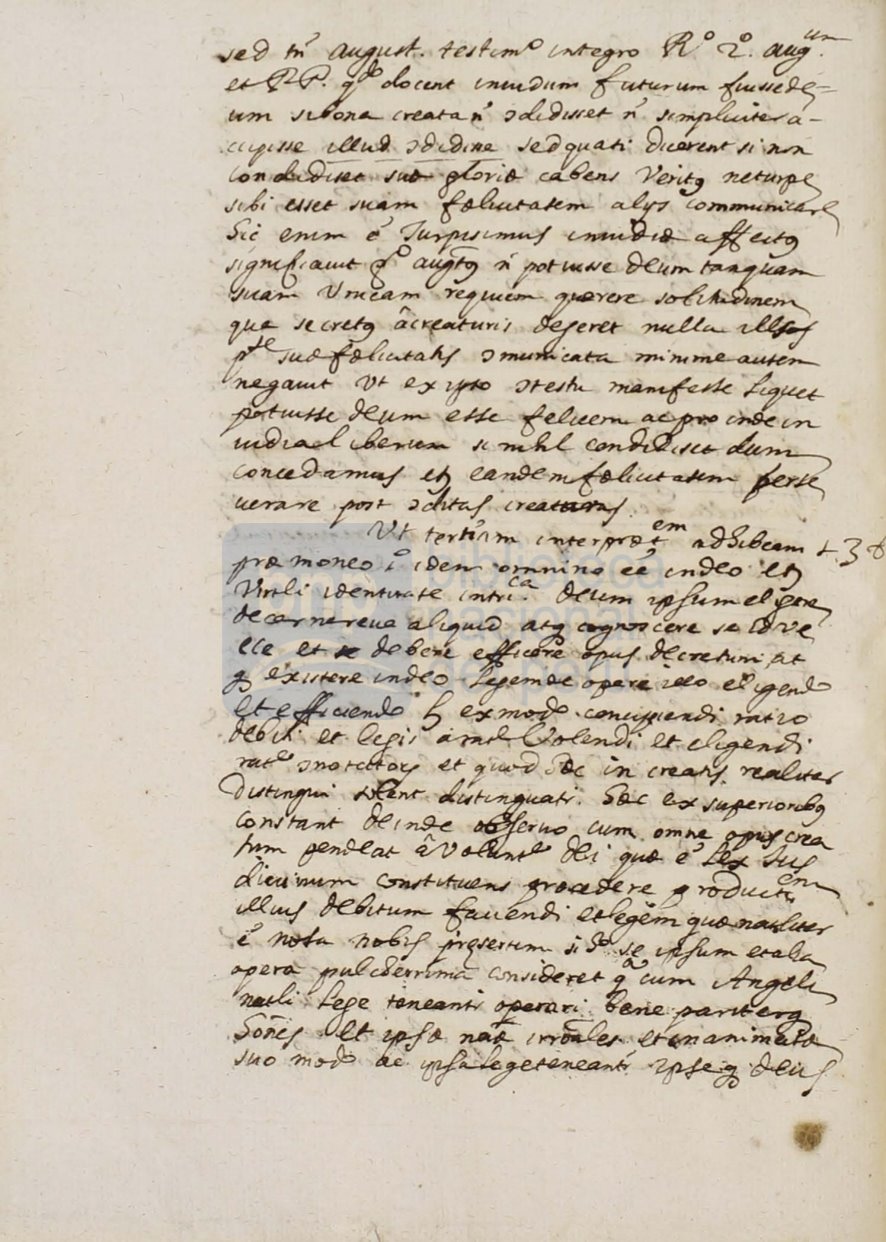 sed tn̄ August. testimo integro Ro 2o. augum.
et PP. qdo docent inuidum futurum fuisse de=
um si bona creata n̄ ɔdidisset n̄ simpliciter a-
ccipisse illud ɔdidisse sed quasi dicerent si non
condidiset suæ gloriæ cabens veritꝰ ne turpe
sibi esset suam fælicitatem alijs communicare
Sic enim ē Turpisimus inuidiæ affectꝰ
significauit qo augtꝰ n̄ potuisse deum tanquam
suam Vnicam requiem quærere solitudinem
qua secretꝰ a creaturis degeret nulla illis
pte suæ fælicitatis ɔmunicata minime autem
negauit Vt ex ipso ɔtestu manifeste liquet
potuisse deum esse felicem ac pro inde in
uidia liberum si nihl condidiset dum
concedamus eandem fælicitatem perse
uerare post ɔditas creaturas
Vt tertium interpræt.em adhibeam
præmoneo 1o idem omnino eē in deo
Virtli identitate intri.ca deum ipsum eligere
decernereue aliquid atq cognoscere se id ve
lle et debere efficere opus decretum at
q existere in deo legem de opere illo eligendo
et efficiendo ex modo concipiendi ratio
debiti et legis a ratl volendi et eligendi
et quod hæc in creatis realiter
distingui solent distinguati. Hæc ex superioribꝰ
constant deinde obseruo cum omne opus crea
tum pendeat a Volunte dei quæ ē lex Ius
diuinum constituens procedere productiem
illius debitum fauendi et legem quæ natliter
ē nota nobis præsertim si Do se ipsum et alia
opera pulcherrima consideret qa cum Angeli
natli lege teneanti operari bene pariterq
hoēs et ipsæ natæ irroāles et inanimatæ
suo modo ac ipsa lege teneanti ipseq deus